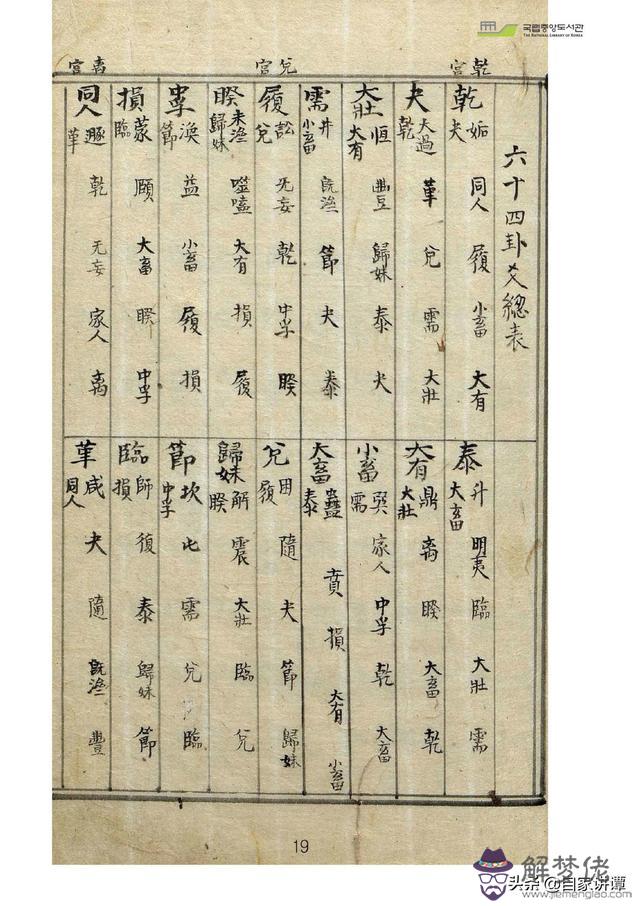 국립중앙도서관
THE NATIONAL LIBRARY OF KOREA
乾宮
兌宮
离宮
六十四卦爻總表
乾 姤 同人 履 小畜 大有 夬
夬 大過 革 兌 需 大壯 乾
大壯 恒 豊 歸妹 泰 夬 大有
需 井 旣濟 節 夬 泰 小畜
履 訟 无妄 乾 中孚 睽 兌
睽 未濟 噬嗑 大有 損 履 歸妹
中孚 渙 益 小畜 履 損 節
損 蒙 頤 大畜 睽 中孚 臨
同人 遯 乾 无妄 家人 离 革
泰 升 明夷 臨 大壯 需 大畜
大有 鼎 离 睽 大畜 乾 大壯
小畜 巽 家人 中孚 乾 大畜 需
大畜 蠱 賁 損 大有 小畜 泰
兌 困 隨 夬 節 歸妹 履
歸妹 解 震 大壯 臨 兌 睽
節 坎 屯 需 兌 臨 中孚
臨 師 復 泰 歸妹 節 損
革 咸 夬 隨 旣濟 豐 同人
19
解梦佬
头条 @自家讲谭
www.jiemenglao.com